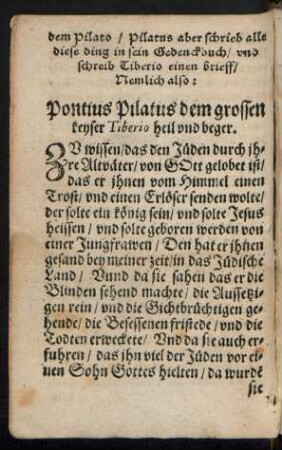 dem Pilato / Pilatus aber schrieb alle
diese ding in sein Gedenckbuch / vnd
schreib Tiberio einen brieff /
Nemlich also:
Pontius Pilatus dem grossen
keyser Tiberio heil vnd beger.
ZV wissen / das den Jüden durch jh-
re Altväter / von GOtt gelobet ist /
das er jhnen vom Himmel einen
Trost / vnd einen Erlöser senden wolte /
der solte ein könig sein / vnd solte Jesus
heissen / vnd solte geboren werden von
einer Jungfrawen / Den hat er jhnen
gesand bey meiner zeit / in das Jüdische
Land / Vnnd da sie sahen das er die
Blinden sehend machte / die Aussetzi-
gen rein / vnd die Gichtbrüchtigen ge-
hende / die Besessenen fristede / vnd die
Todten erweckete / Vnd da sie auch er-
fuhren / das jhn viel der Jüden vor ei-
nen Sohn Gottes hielten / da wurdē
sie